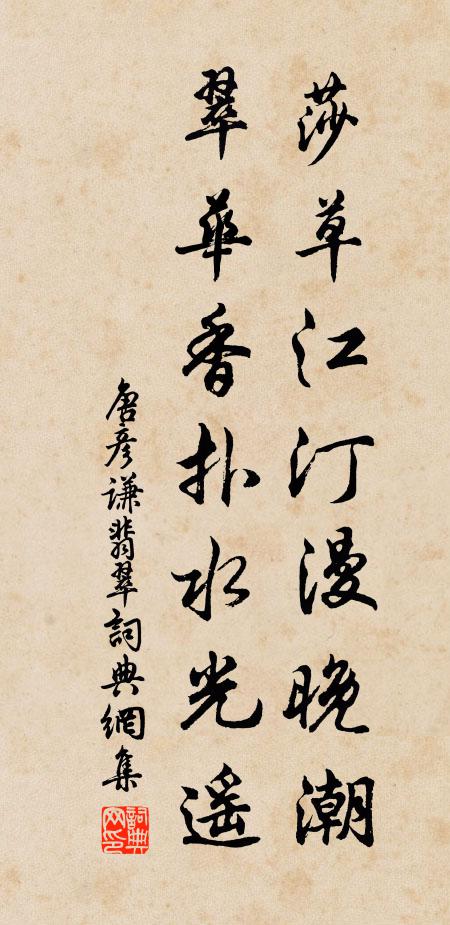 莎草江汀漫晚潮
翠華香扑水光遥
唐彥谦翡翠詞典網集
詞典
网印